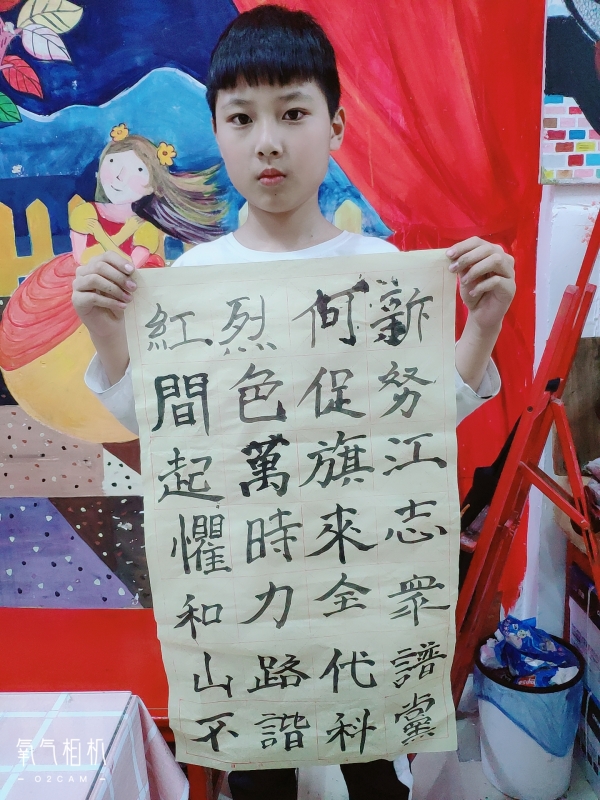 新努江志衆譜黨
何促旗來全代科
烈色萬時力路諧
紅間起懼和山不
氧气相机
- O2CAM -